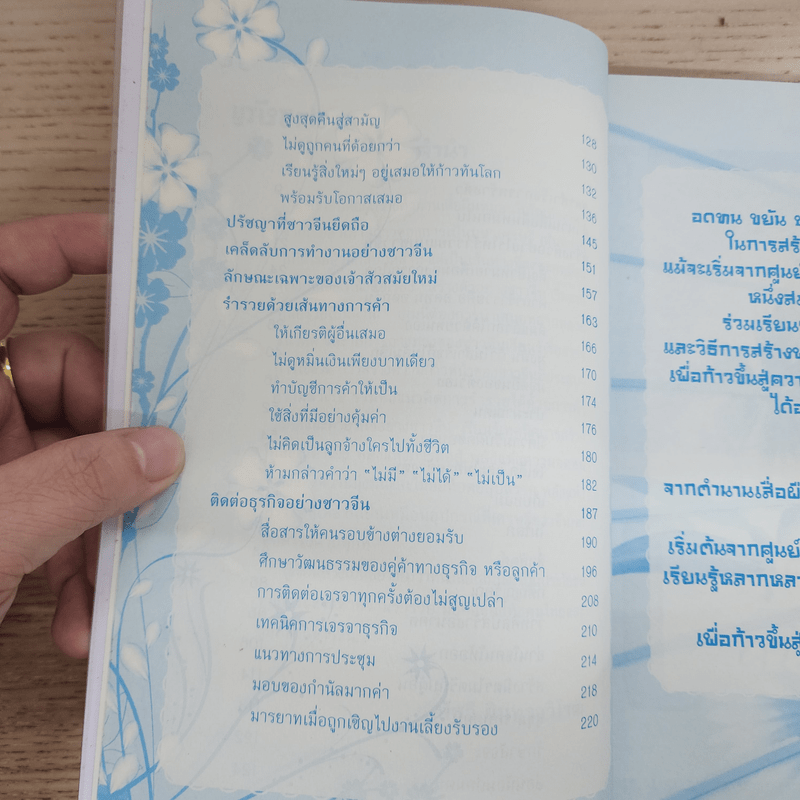 สูงสุดคืนสู่สามัญ 128
ไม่ดูถูกคนที่ด้อยกว่า 130
เรียนรู้สิ่งใหม่ๆ อยู่เสมอให้ก้าวทันโลก 132
พร้อมรับโอกาสเสมอ 136
ปรัชญาที่ชาวจีนยึดถือ 145
เคล็ดลับการทำงานอย่างชาวจีน 151
ลักษณะเฉพาะของเจ้าสัวสมัยใหม่ 157
ร่ำรวยด้วยเส้นทางการค้า 163
ให้เกียรติผู้อื่นเสมอ 166
ไม่ดูหมิ่นเงินเพียงบาทเดียว 170
ทำบัญชีการค้าให้เป็น 174
ใช้สิ่งที่มีอย่างคุ้มค่า 176
ไม่คิดเป็นลูกจ้างใครไปทั้งชีวิต 180
ห้ามกล่าวคำว่า "ไม่มี" "ไม่ได้" "ไม่เป็น" 182
ติดต่อธุรกิจอย่างชาวจีน 187
สื่อสารให้คนรอบข้างต่างยอมรับ 190
ศึกษาวัฒนธรรมของคู่ค้าทางธุรกิจ หรือลูกค้า 196
การติดต่อเจรจาทุกครั้งต้องไม่สูญเปล่า 208
เทคนิคการเจรจาธุรกิจ 210
แนวทางการประชุม 214
มอบของกำนัลมากค่า 218
มารยาทเมื่อถูกเชิญไปงานเลี้ยงรับรอง 220
อดทน ขยัน
ในการสร้
แม้จะเริ่มจากศูนย์
หนึ่งส
ร่วมเรียน
และวิธีการสร้าง
เพื่อก้าวขึ้นสู่ควา
ได้อ
จากตำนานเสื่อผื
เริ่มต้นจากศูนย์
เรียนรู้หลากหลา
เพื่อก้าวขึ้นสู่